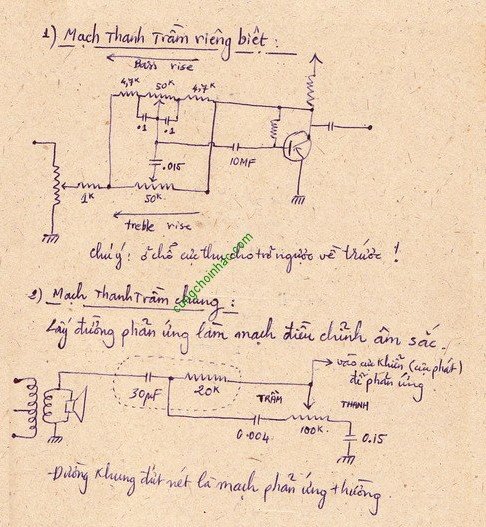 1) Mạch Thanh Trầm riêng biệt :
Bass rise
4,7K 50K 4,7K
.1 .1
.015
10MF
1K 50K
treble rise
chú ý : ở chỗ cực thu cho trở ngược về trước !
congchoinhac.com
2) Mạch Thanh Trầm chung :
Lấy đường phản ứng làm mạch điều chỉnh âm sắc.
vào cực khiển (cực phát)
để phản ứng
30µF 20K
TRẦM THANH
0.004 100K 0.15
-Đường khung đứt nét là mạch phản ứng thường